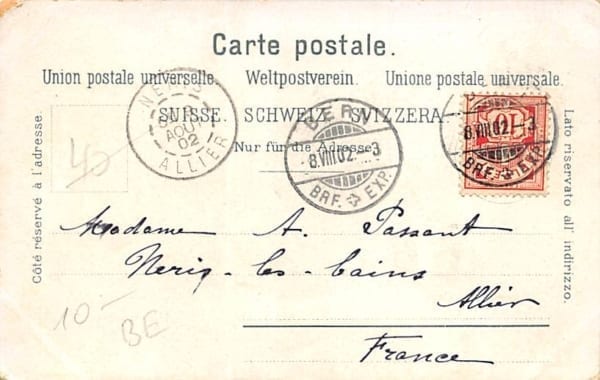 Carte postale.
Union postale universelle. Weltpostverein. Unione postale universale.
SUISSE. SCHWEIZ. SVIZZERA.
Nur für die Adresse.
Côté réservé à l'adresse.
Lato riservato all' indirizzo.
NERIS
AOUT
02
ALLIER
BERN
8.VIII.02.–3
BRF. EXP.
10
8.VIII.02.–3
BRF. EXP.
40
Madame A. Passant
Neris-les-bains
Allier
France
10.–
BE